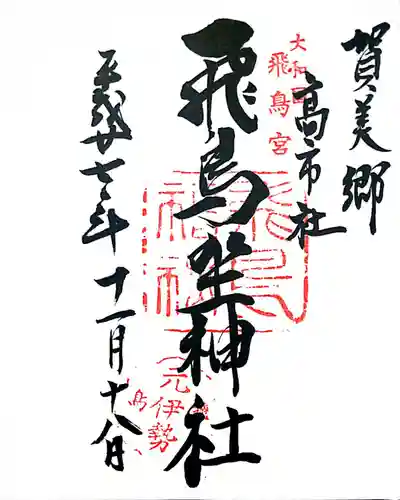 賀美郷
高市社
大和国
飛鳥宮
飛鳥坐神社
元伊勢
平成廿七年十一月十八日